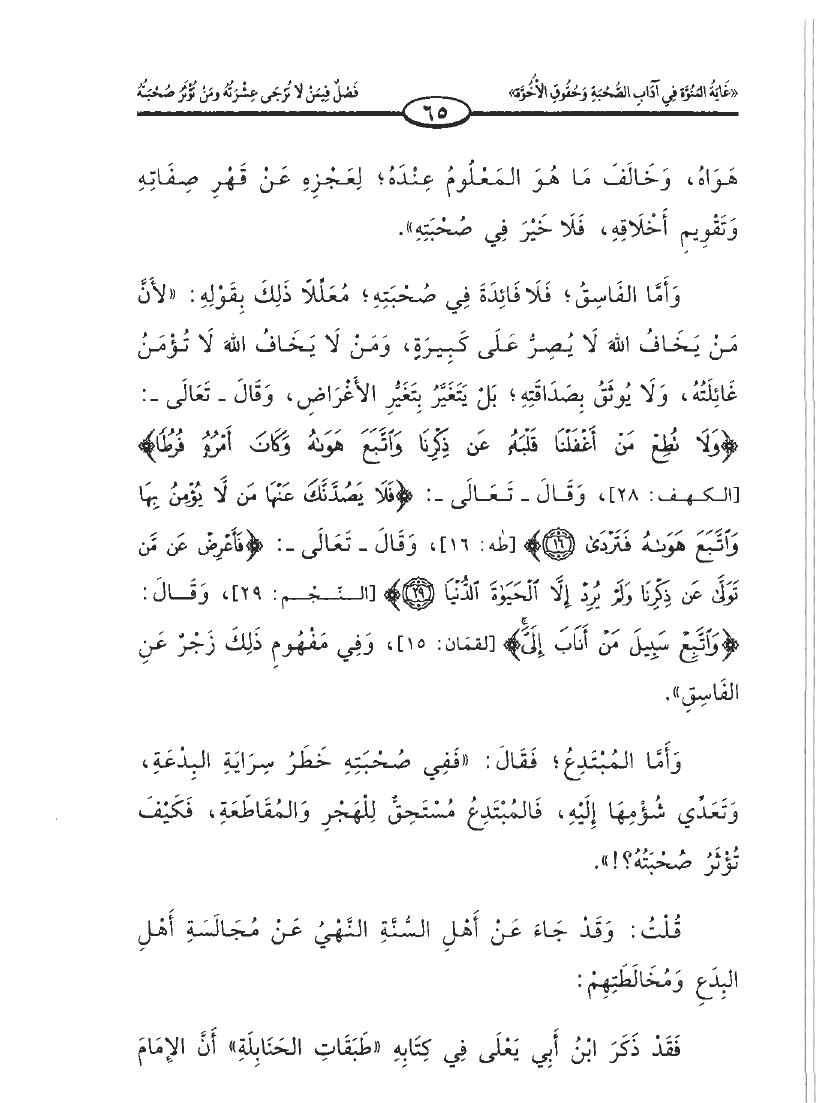 «غَايَةُ المُنُوَّة فِي آدَابِ الصُّحْبَةِ وَحُقُوقِ الأُخُوَّة» فَصْلٌ فِيمَنْ لَا تُرْجَى عِشْرَتُهُ ومَنْ تُؤْثَرُ صُحْبَتُهُ
٦٥
هَوَاهُ، وَخَالَفَ مَا هُوَ المَعْلُومُ عِنْدَهُ؛ لِعَجْزِهِ عَنْ قَهْرِ صِفَاتِهِ
وَتَقْوِيمِ أَخْلَاقِهِ، فَلَا خَيْرَ فِي صُحْبَتِهِ».
وَأَمَّا الفَاسِقُ؛ فَلَا فَائِدَةَ فِي صُحْبَتِهِ؛ مُعَلِّلًا ذَلِكَ بِقَوْلِهِ: «لأَنَّ
مَنْ يَخَافُ اللهَ لَا يُصِرُّ عَلَى كَبِيرَةٍ، وَمَنْ لَا يَخَافُ اللهَ لَا تُؤْمَنُ
غَائِلَتُهُ، وَلَا يُوثَقُ بِصَدَاقَتِهِ؛ بَلْ يَتَغَيَّرُ بِتَغَيُّرِ الأَغْرَاضِ، وَقَالَ ـ تَعَالَى ـ:
﴿وَلَا نُطِعْ مَنْ أَغْفَلْنَا قَلْبَهُۥ عَن ذِكْرِنَا وَٱتَّبَعَ هَوَىٰهُ وَكَانَ أَمْرُهُۥ فُرُطًا﴾
[الكهف: ٢٨]، وَقَالَ ـ تَعَالَى ـ: ﴿فَلَا يَصُدَّنَّكَ عَنْهَا مَن لَّا يُؤْمِنُ بِهَا
وَٱتَّبَعَ هَوَىٰهُ فَتَرْدَىٰ ١٦﴾ [طه: ١٦]، وَقَالَ ـ تَعَالَى ـ: ﴿فَأَعْرِضْ عَن مَّن
تَوَلَّىٰ عَن ذِكْرِنَا وَلَمْ يُرِدْ إِلَّا ٱلْحَيَوٰةَ ٱلدُّنْيَا ٢٩﴾ [النَّجْم: ٢٩]، وَقَالَ:
﴿وَٱتَّبِعْ سَبِيلَ مَنْ أَنَابَ إِلَيَّ﴾ [لقمَان: ١٥]، وَفِي مَفْهُومِ ذَلِكَ زَجْرٌ عَنِ
الفَاسِقِ».
وَأَمَّا المُبْتَدِعُ؛ فَقَالَ: «فَفِي صُحْبَتِهِ خَطَرُ سِرَايَةِ البِدْعَةِ،
وَتَعَدِّي شُؤْمِهَا إِلَيْهِ، فَالمُبْتَدِعُ مُسْتَحِقٌّ لِلْهَجْرِ وَالمُقَاطَعَةِ، فَكَيْفَ
تُؤْثَرُ صُحْبَتُهُ؟!».
قُلْتُ: وَقَدْ جَاءَ عَنْ أَهْلِ السُّنَّةِ النَّهْيُ عَنْ مُجَالَسَةِ أَهْلِ
البِدَعِ وَمُخَالَطَتِهِمْ:
فَقَدْ ذَكَرَ ابْنُ أَبِي يَعْلَى فِي كِتَابِهِ «طَبَقَاتِ الحَنَابِلَةِ» أَنَّ الإِمَامَ